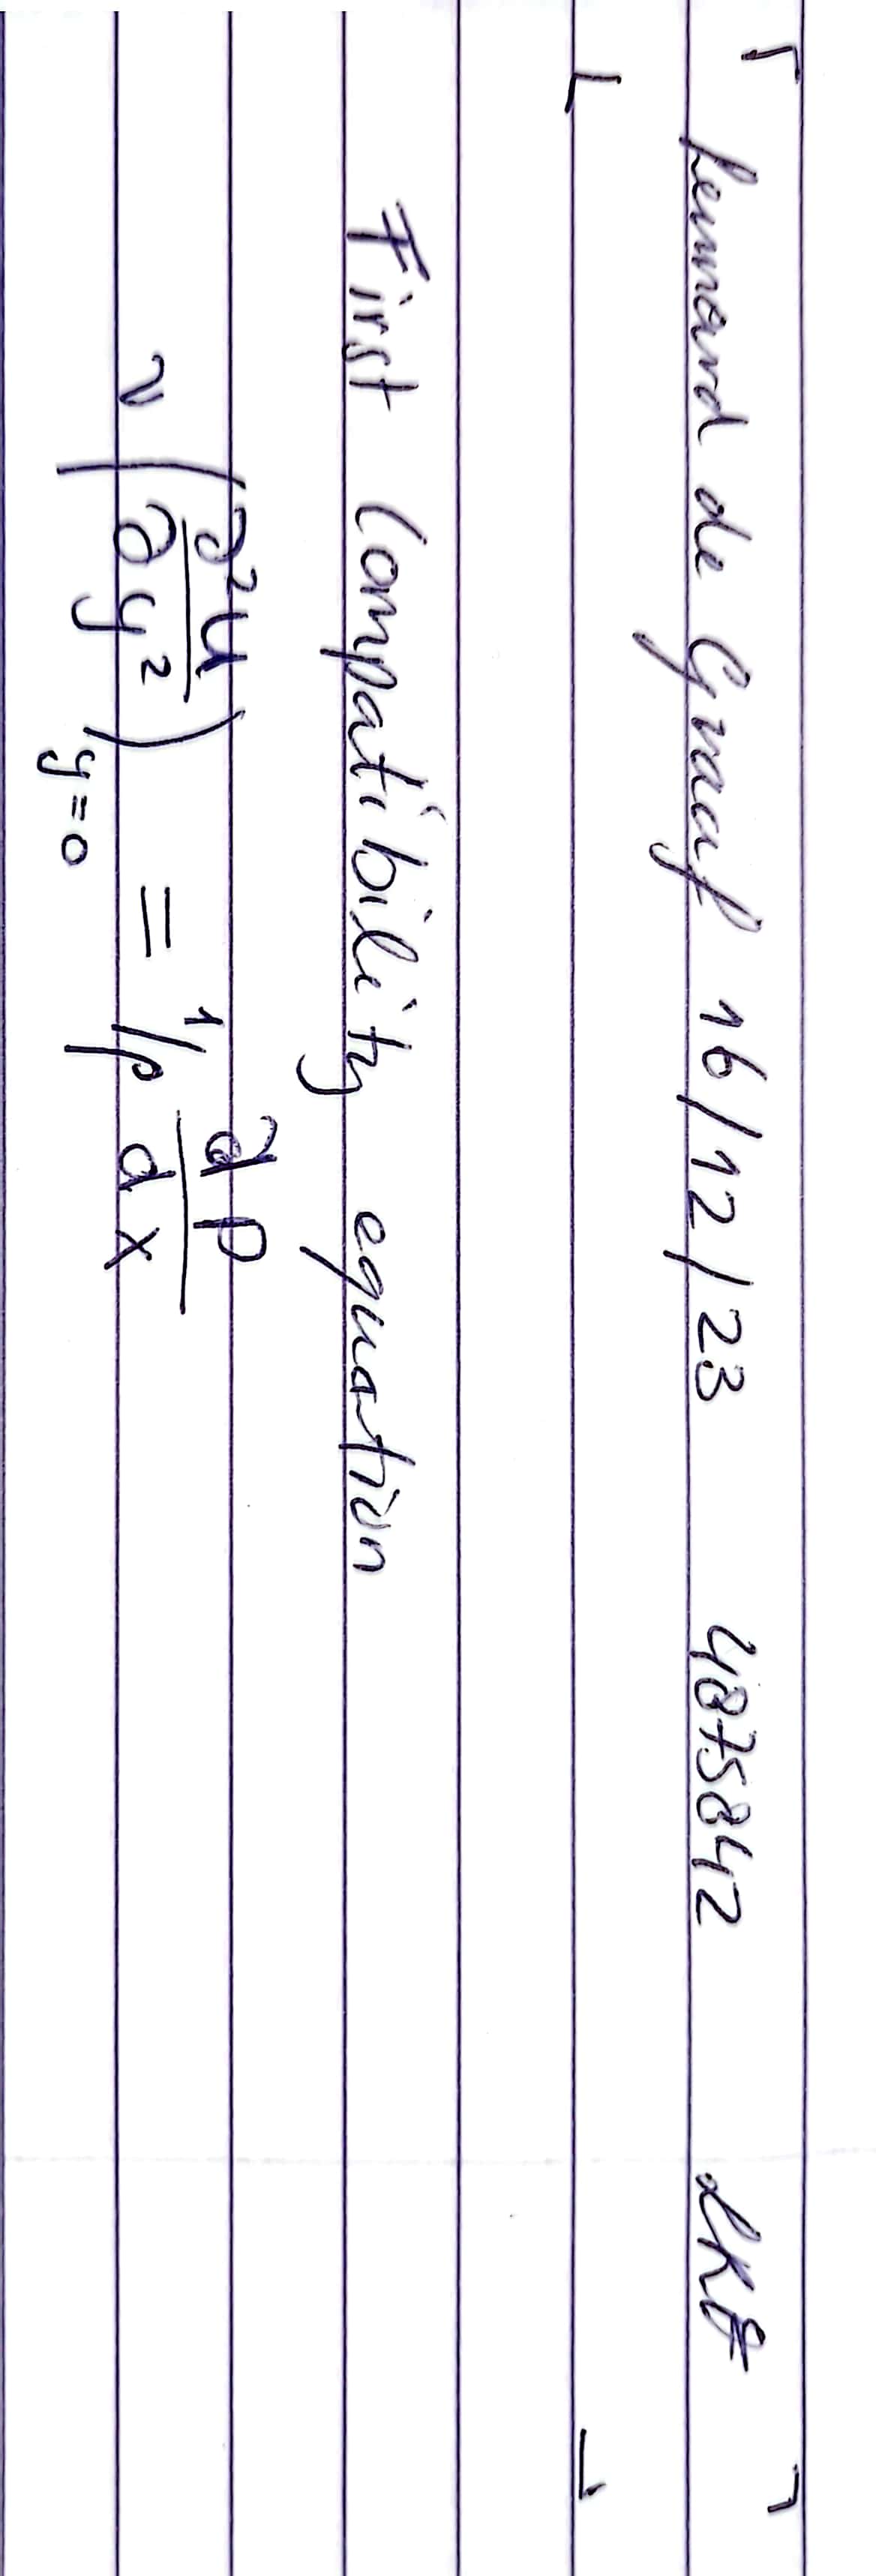 Lennard de Graaf 16/12/23 4875842
First Compatibility equation
ν (∂²u/∂y²)y=0 = 1/ρ dp/dx